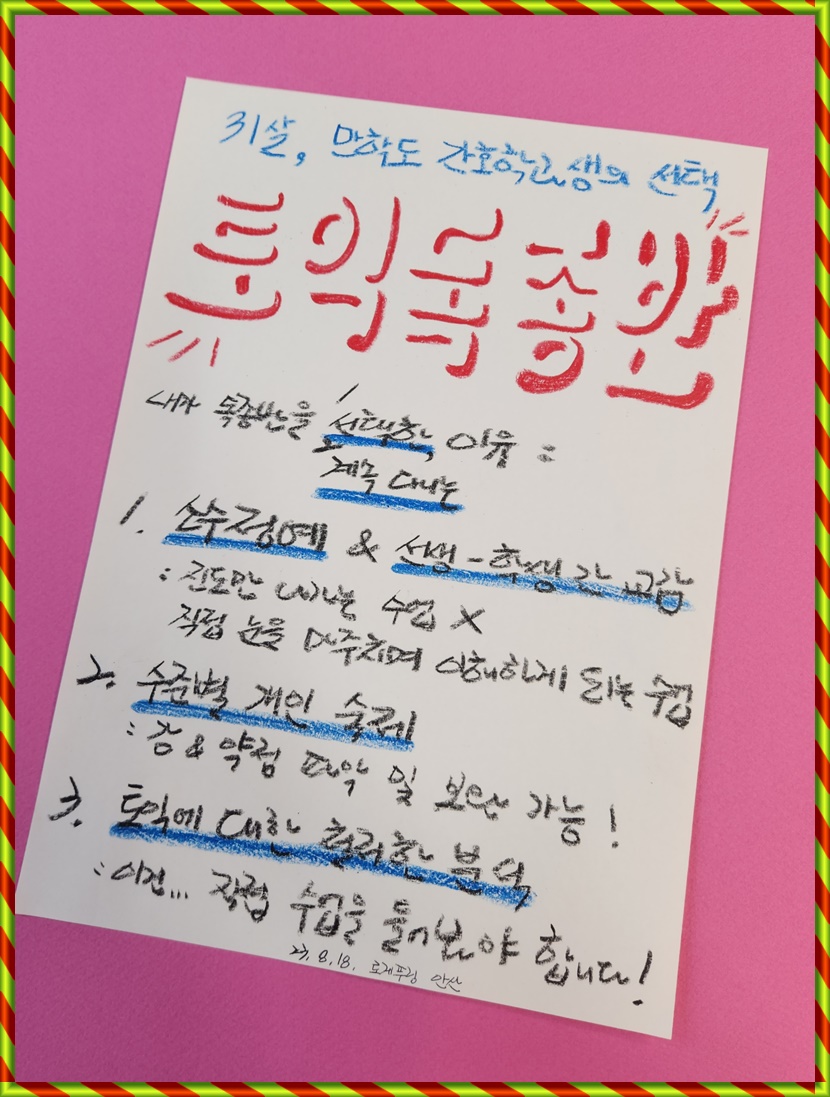 31살, 만학도 간호학과생의 선택
토익목종반
내가 목종반을 선택한, 이유 :
계속 다니는
1. 소수정예 & 선생-학생 간 교감
: 진도만 나가는 수업 X
직접 눈을 마주치며 이해하게 되는 수업
2. 수준별 개인 숙제
: 강 & 약점 파악 및 보완 가능!
3. 토익에 대한 철저한 분석
: 이건... 직접 수업을 들어봐야 합니다!
23. 8. 18. 안산